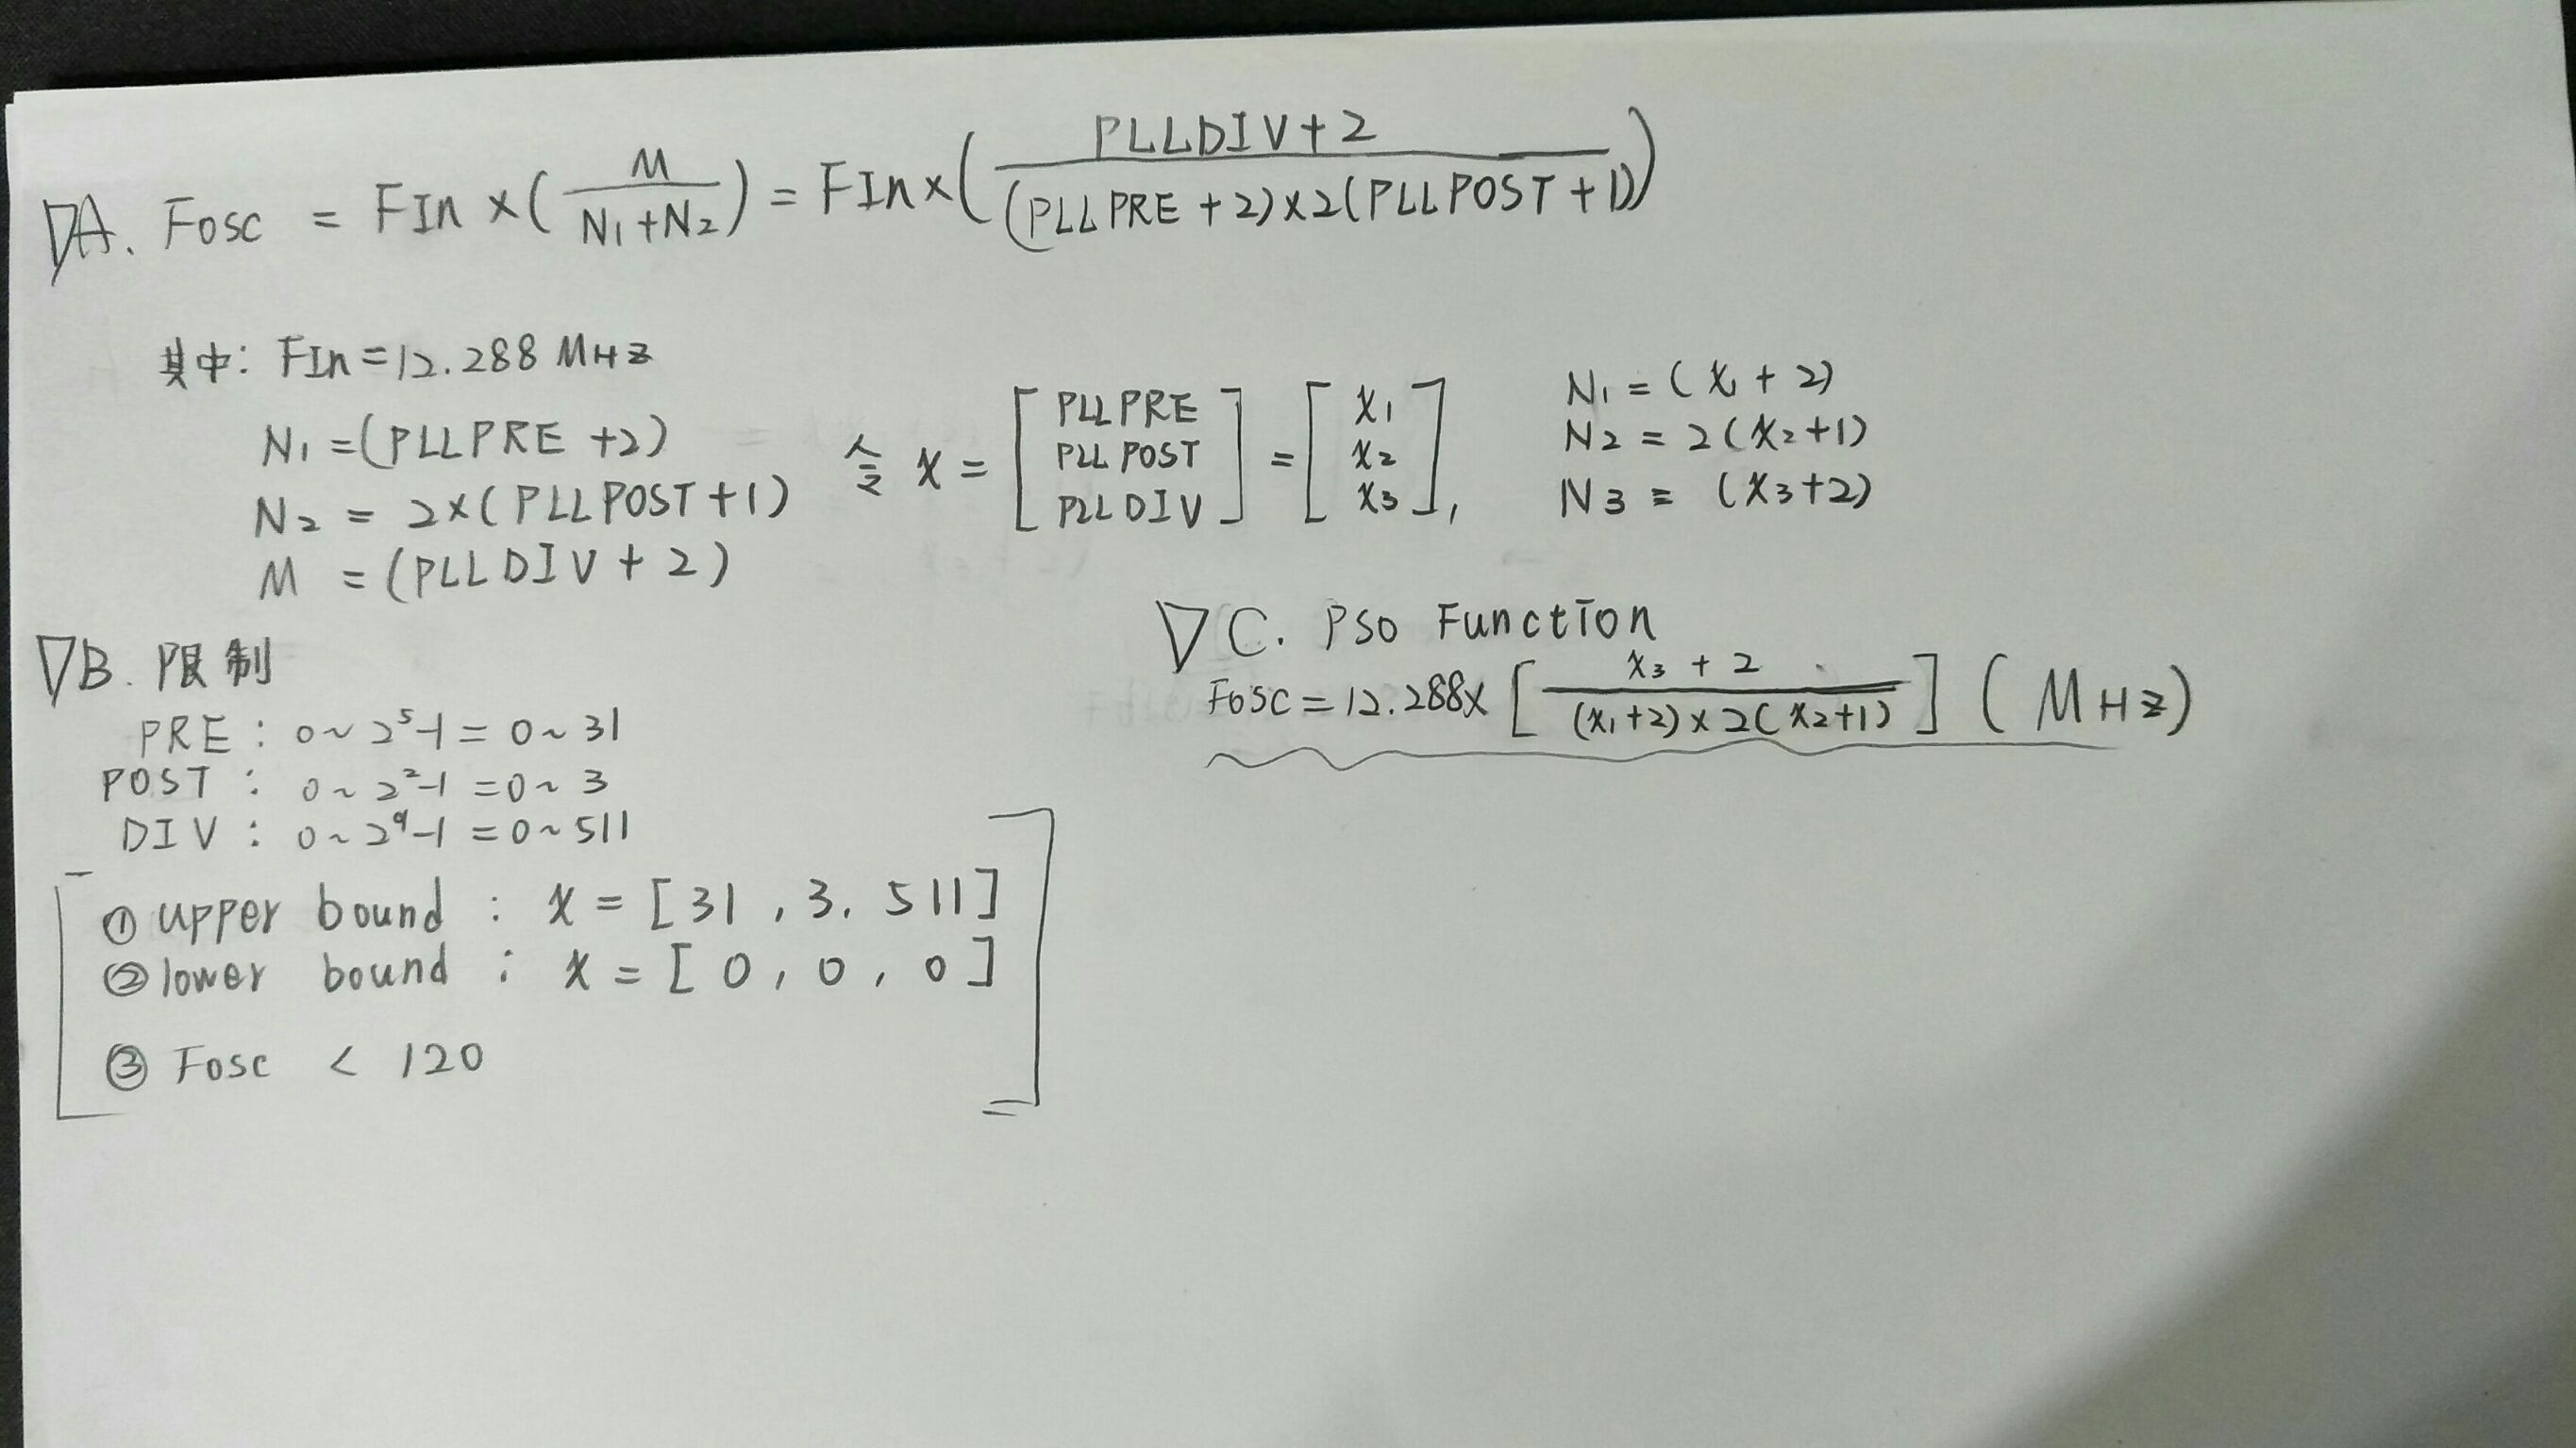 ▽A. Fosc = FIn × ( M / (N₁+N₂) ) = FIn × ( (PLLDIV+2) / ((PLLPRE+2)×2(PLLPOST+1)) )
其中: FIn=12.288 MHz
N₁ =(PLLPRE +2)
N₂ = 2×(PLLPOST+1)
M = (PLLDIV+2)
令 x = [ PLLPRE PLLPOST PLLDIV ] = [ x₁ x₂ x₃ ],
N₁ = (x₁+2)
N₂ = 2(x₂+1)
N3 = (x₃+2)
▽B. 限制
PRE : 0~2⁵-1 = 0~31
POST : 0~2²-1 = 0~3
DIV : 0~2⁹-1 = 0~511
① upper bound : x = [31, 3, 511]
② lower bound : x = [0, 0, 0]
③ Fosc < 120
▽C. PSO Function
Fosc = 12.288× [ (x₃+2) / ((x₁+2)×2(x₂+1)) ] (MHz)